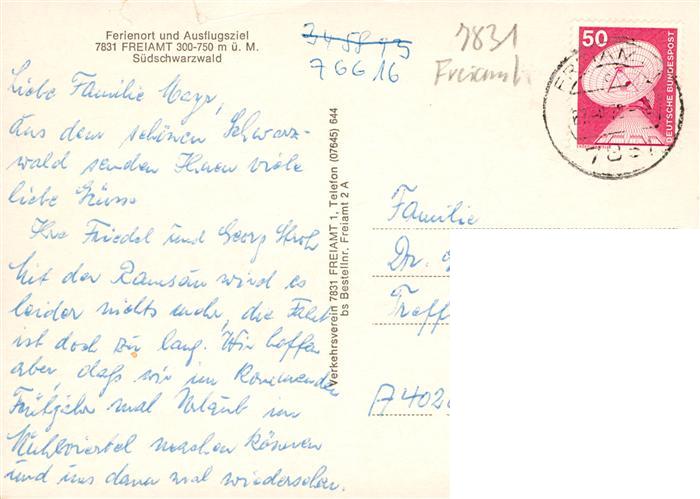 Ferienort und Ausflugsziel
7831 FREIAMT 300-750 m ü. M.
Südschwarzwald
3458 15
76616
7831
Freiamt
50
DEUTSCHE BUNDESPOST
FREIAM
783
Liebe Familie Mayr,
Aus dem schönen Schwarz-
wald senden Ihnen viele
liebe Grüsse
Ihre Friedel und Georg Stroh
Mit der Ramsau wird es
leider nichts mehr, die Fahrt
ist doch zu lang. Wir hoffen
aber, daß wir im kommenden
Frühjahr mal Urlaub im
Mühlviertel machen können
und uns dann mal wiedersehen.
Verkehrsverein 7831 FREIAMT 1, Telefon (07645) 644
bs Bestellnr. Freiamt 2 A
Familie
Dr.
Treff
A 402